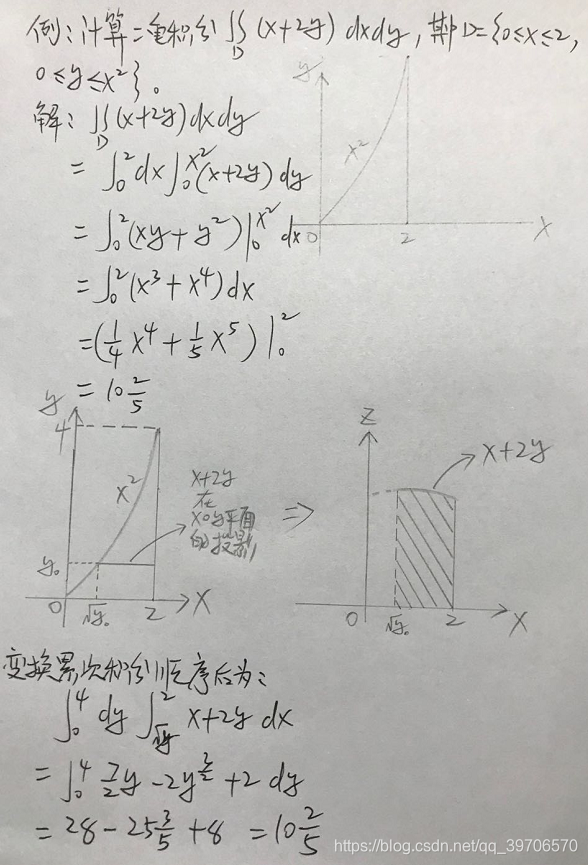 例：计算二重积分∬_D (x+2y) dxdy，其中D={0≤x≤2,
0≤y≤x²}。
解：∬_D (x+2y)dxdy
= ∫₀² dx∫₀^{x²}(x+2y) dy
= ∫₀²(xy+y²)|₀^{x²} dx
= ∫₀²(x³+x⁴)dx
=(1/4 x⁴+1/5 x⁵)|₀²
= 10 2/5
y
x²
0
2
x
y
4
x²
y₀
0
√y₀
2
x
x+2y
在
xoy平面
的投影
⇒
z
x+2y
0
√y₀
2
x
变换累次积分顺序后为：
∫₀⁴ dy ∫_{√y}² x+2y dx
= ∫₀⁴ 7/2 y -2y^{3/2} +2 dy
= 28 - 25 3/5 +8 = 10 2/5
https://blog.csdn.net/qq_39706570